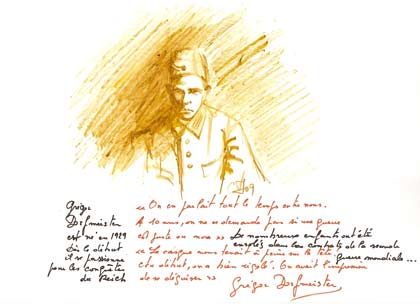 09
Grégor
Dorfmeister
est né en 1929
Dès le début
il se passionne
pour les conquêtes
du Reich
« On en parlait tout le temps entre nous.
A 10 ans, on ne se demande pas si une guerre
est juste ou non »
« Le casque nous tenait à peine sur la tête,
Au début, on a bien rigolé. On avait l'impression
de se déguiser »
De nombreux enfants ont été
enrolés dans les combats de la seconde
guerre mondiale...
Grégor Dorfmeister